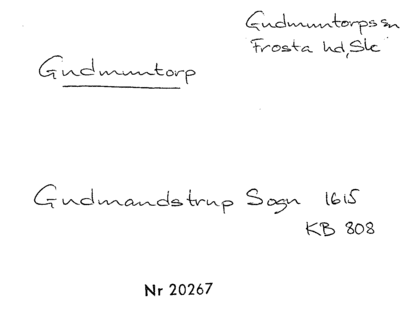 Gudmuntorps sn
Frosta hd, Sk
Gudmuntorp
Gudmandstrup Sogn 1615
KB 808
Nr 20267